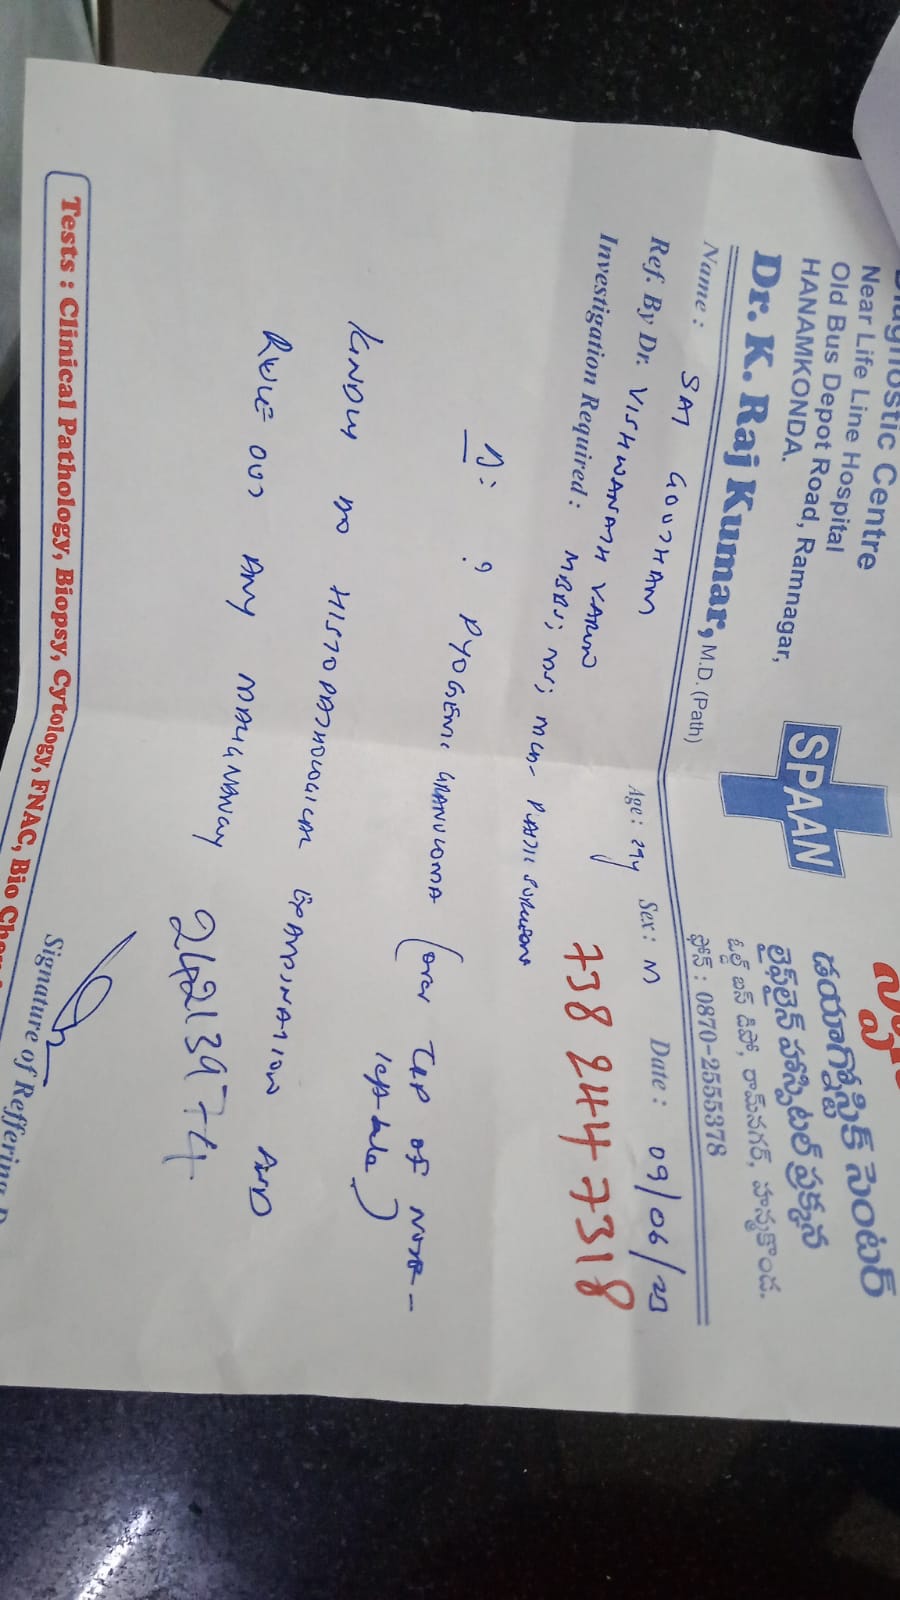 Diagnostic Centre
Near Life Line Hospital
Old Bus Depot Road, Ramnagar,
HANAMKONDA.
SPAAN
డయాగ్నోస్టిక్ సెంటర్
లైఫ్‌లైన్ హాస్పిటల్ ప్రక్కన
ఓల్డ్ బస్ డిపో, రామ్‌నగర్, హన్మకొండ.
ఫోన్ : 0870-2555378
Dr. K. Raj Kumar, M.D. (Path)
Name : SAI GOUTHAM Age : 29y Sex : M Date : 09/06/25
Ref. By Dr. VISHWANATH VARUN
Investigation Required : MBBS; MS; MCh- PLASTIC SURGEON
738 244 7318
D: ? PYOGENIC GRANULOMA (over TIP OF NOSE -
left side)
KINDLY DO HISTOPATHOLOGICAL EXAMINATION AND
RULE OUT ANY MALIGNANCY
24213974
Signature of Reffering D
Tests : Clinical Pathology, Biopsy, Cytology, FNAC, Bio Chem